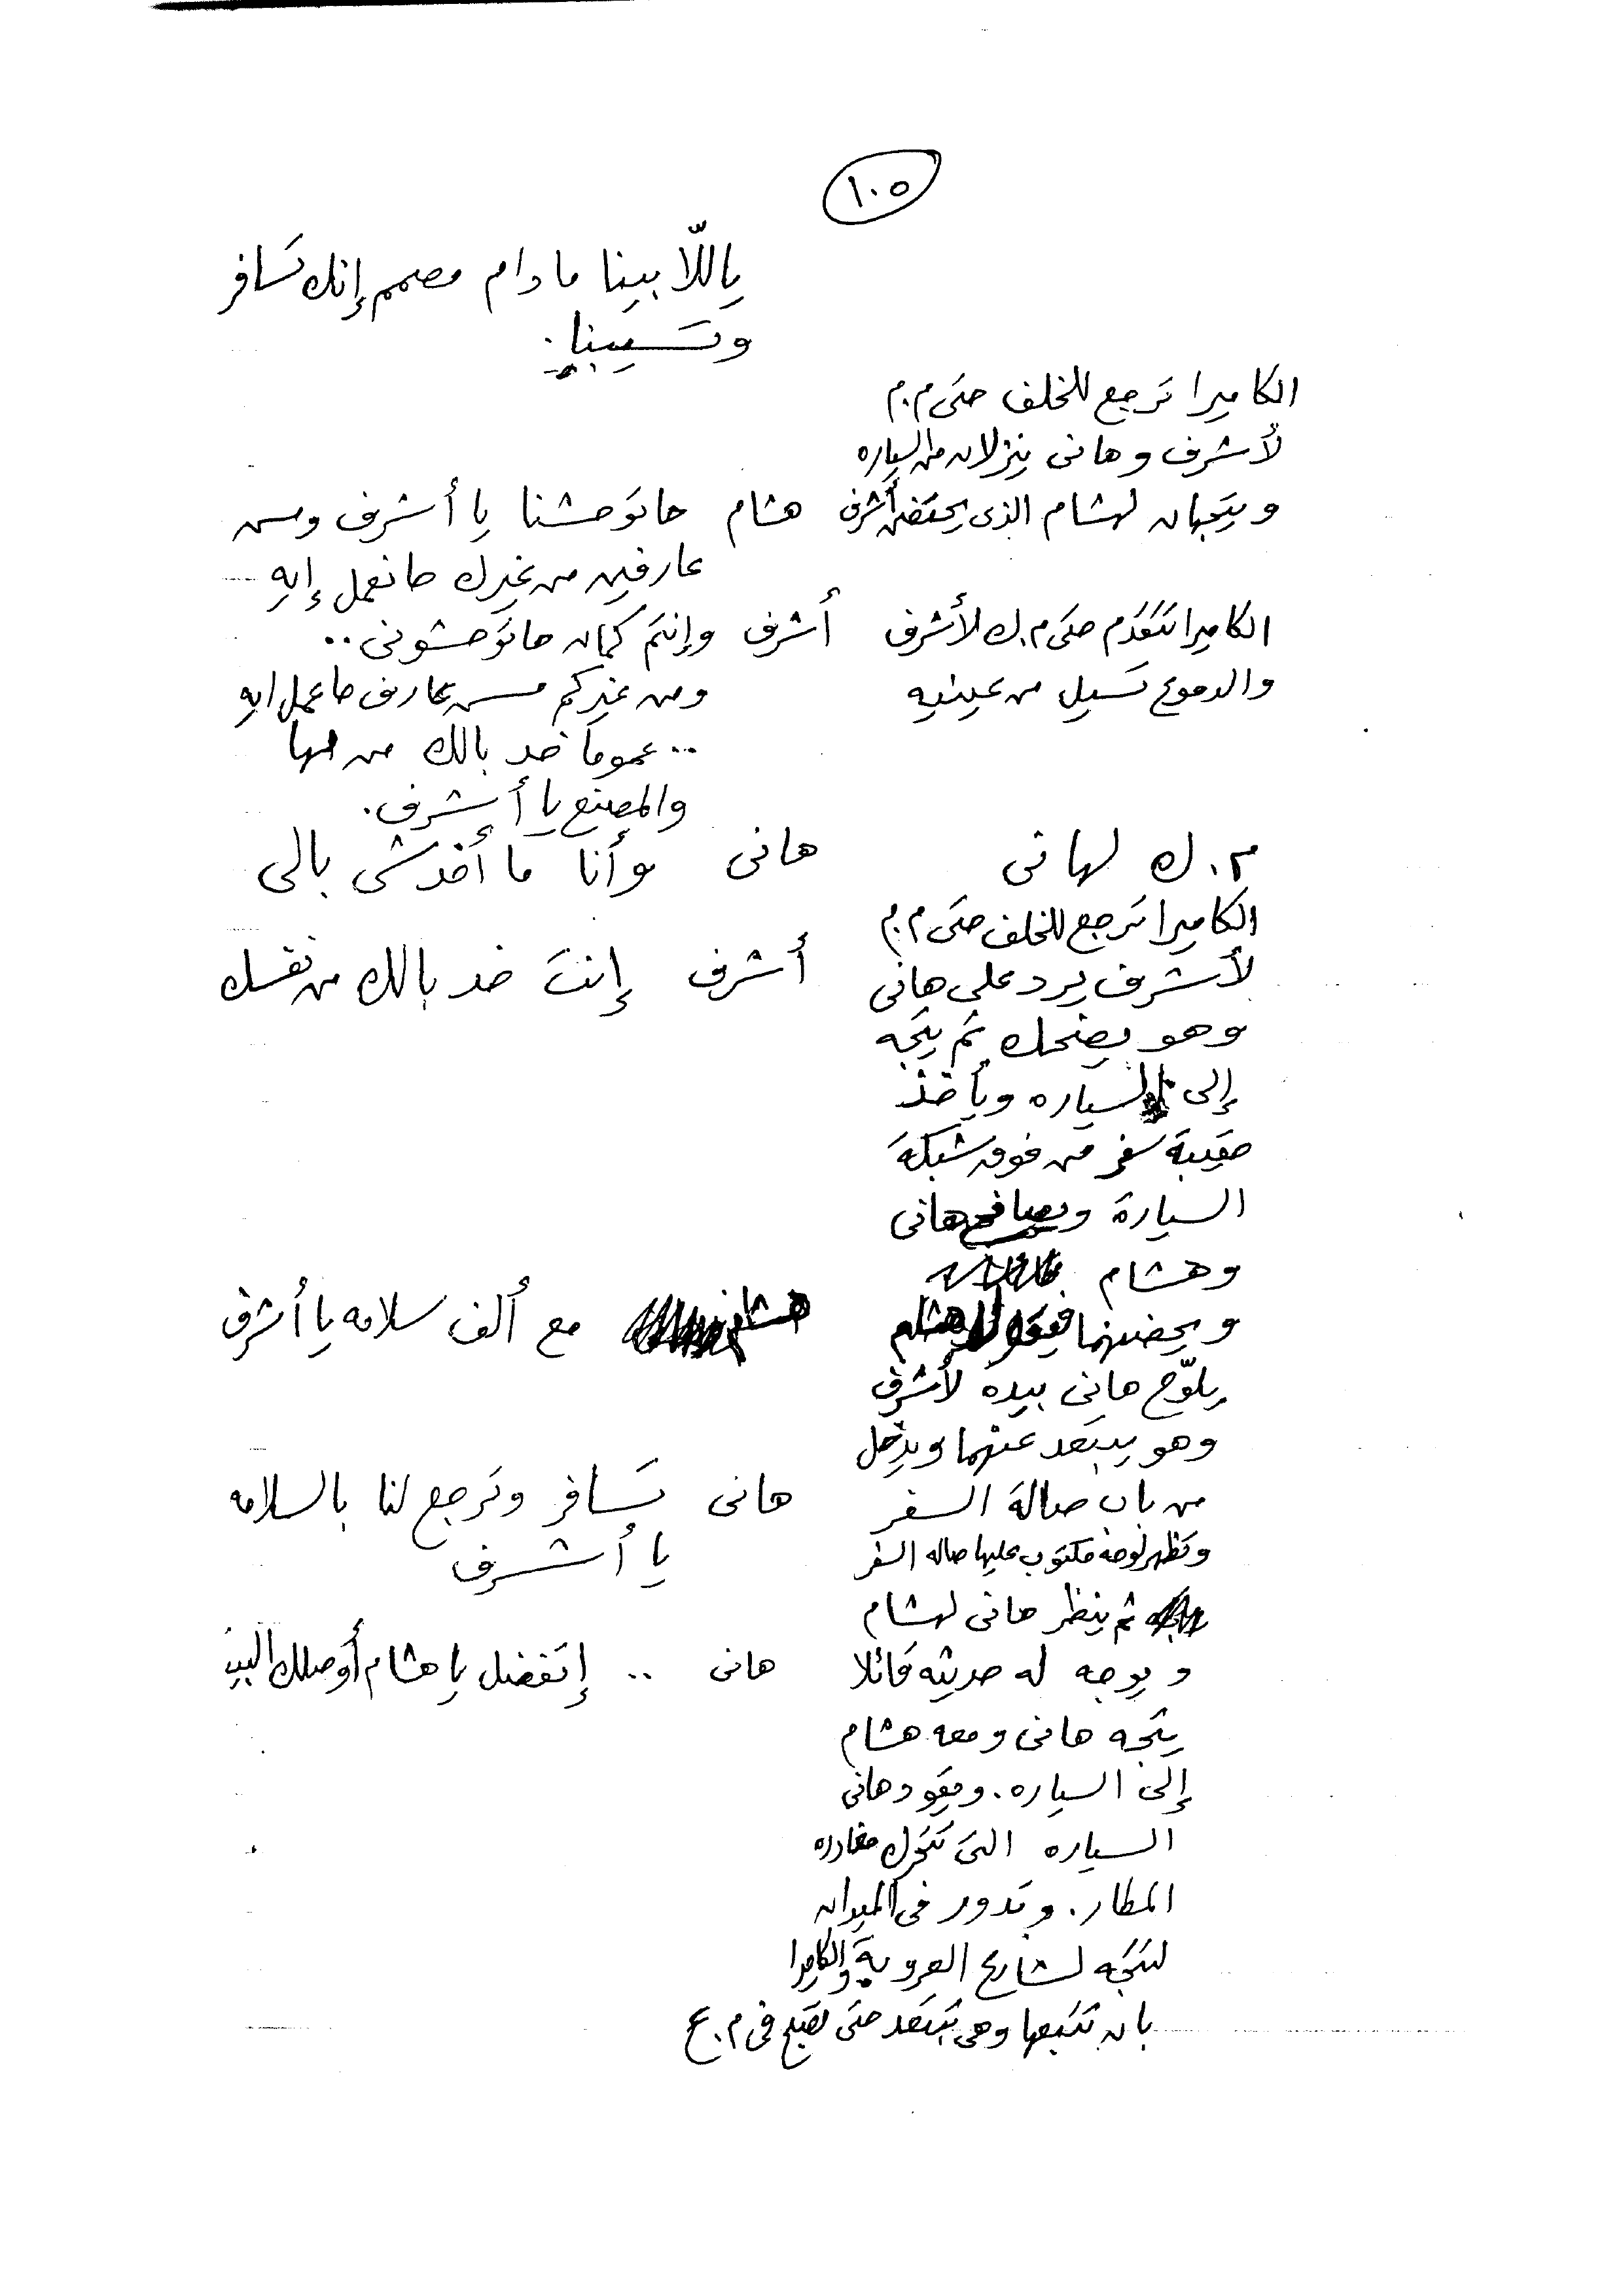 ١٠٥
ياللّا بينا مادام مصمم إنك تسافر
وتسيبنا.
الكاميرا ترجع للخلف حتى م.م
لأشرف وهانى ينزلان من السياره
ويتجهان لهشام الذى يحتضن أشرف هشام حاتوحشنا يا أشرف ومش
عارفين من غيرك حانعمل إيه
الكاميرا تتقدم حتى م.ك لأشرف أشرف وإنتم كمان حاتوحشونى ..
والدموع تسيل من عينيه ومن غيركم مش عارف حاعمل ايه
.. عموما خد بالك من مها
والمصنع يا أشرف.
م.ك لهانى هانى وأنا ما أخدش بالى
الكاميرا ترجع للخلف حتى م.م
لأشرف يرد على هانى أشرف إنت خد بالك من نفسك
وهو يضحك ثم يتجه
إلى السياره ويأخذ
حقيبة سفر من فوق شبكة
السيارة ويصافح هانى
وهشام
ويحضنهما فيقول هشام هشام مع ألف سلامه يا أشرف
يلوّح هانى بيده لأشرف
وهو يبتعد عنهما ويدخل
من باب صالة السفر هانى تسافر وترجع لنا بالسلامه
يا أشرف
وتظهر لوحة مكتوب عليها صاله السفر
ثم ينظر هانى لهشام
ويوجه له حديثه قائلا هانى .. إتفضل يا هشام أوصلك البيت
يتجه هانى ومعه هشام
إلى السياره. ويقود هانى
السياره التى تتحرك مغادره
المطار. وتدور فى الميدان
لتتجه لشارع العروبة والكاميرا
بان تتبعها وهى تبتعد حتى تصبح فى م.ع